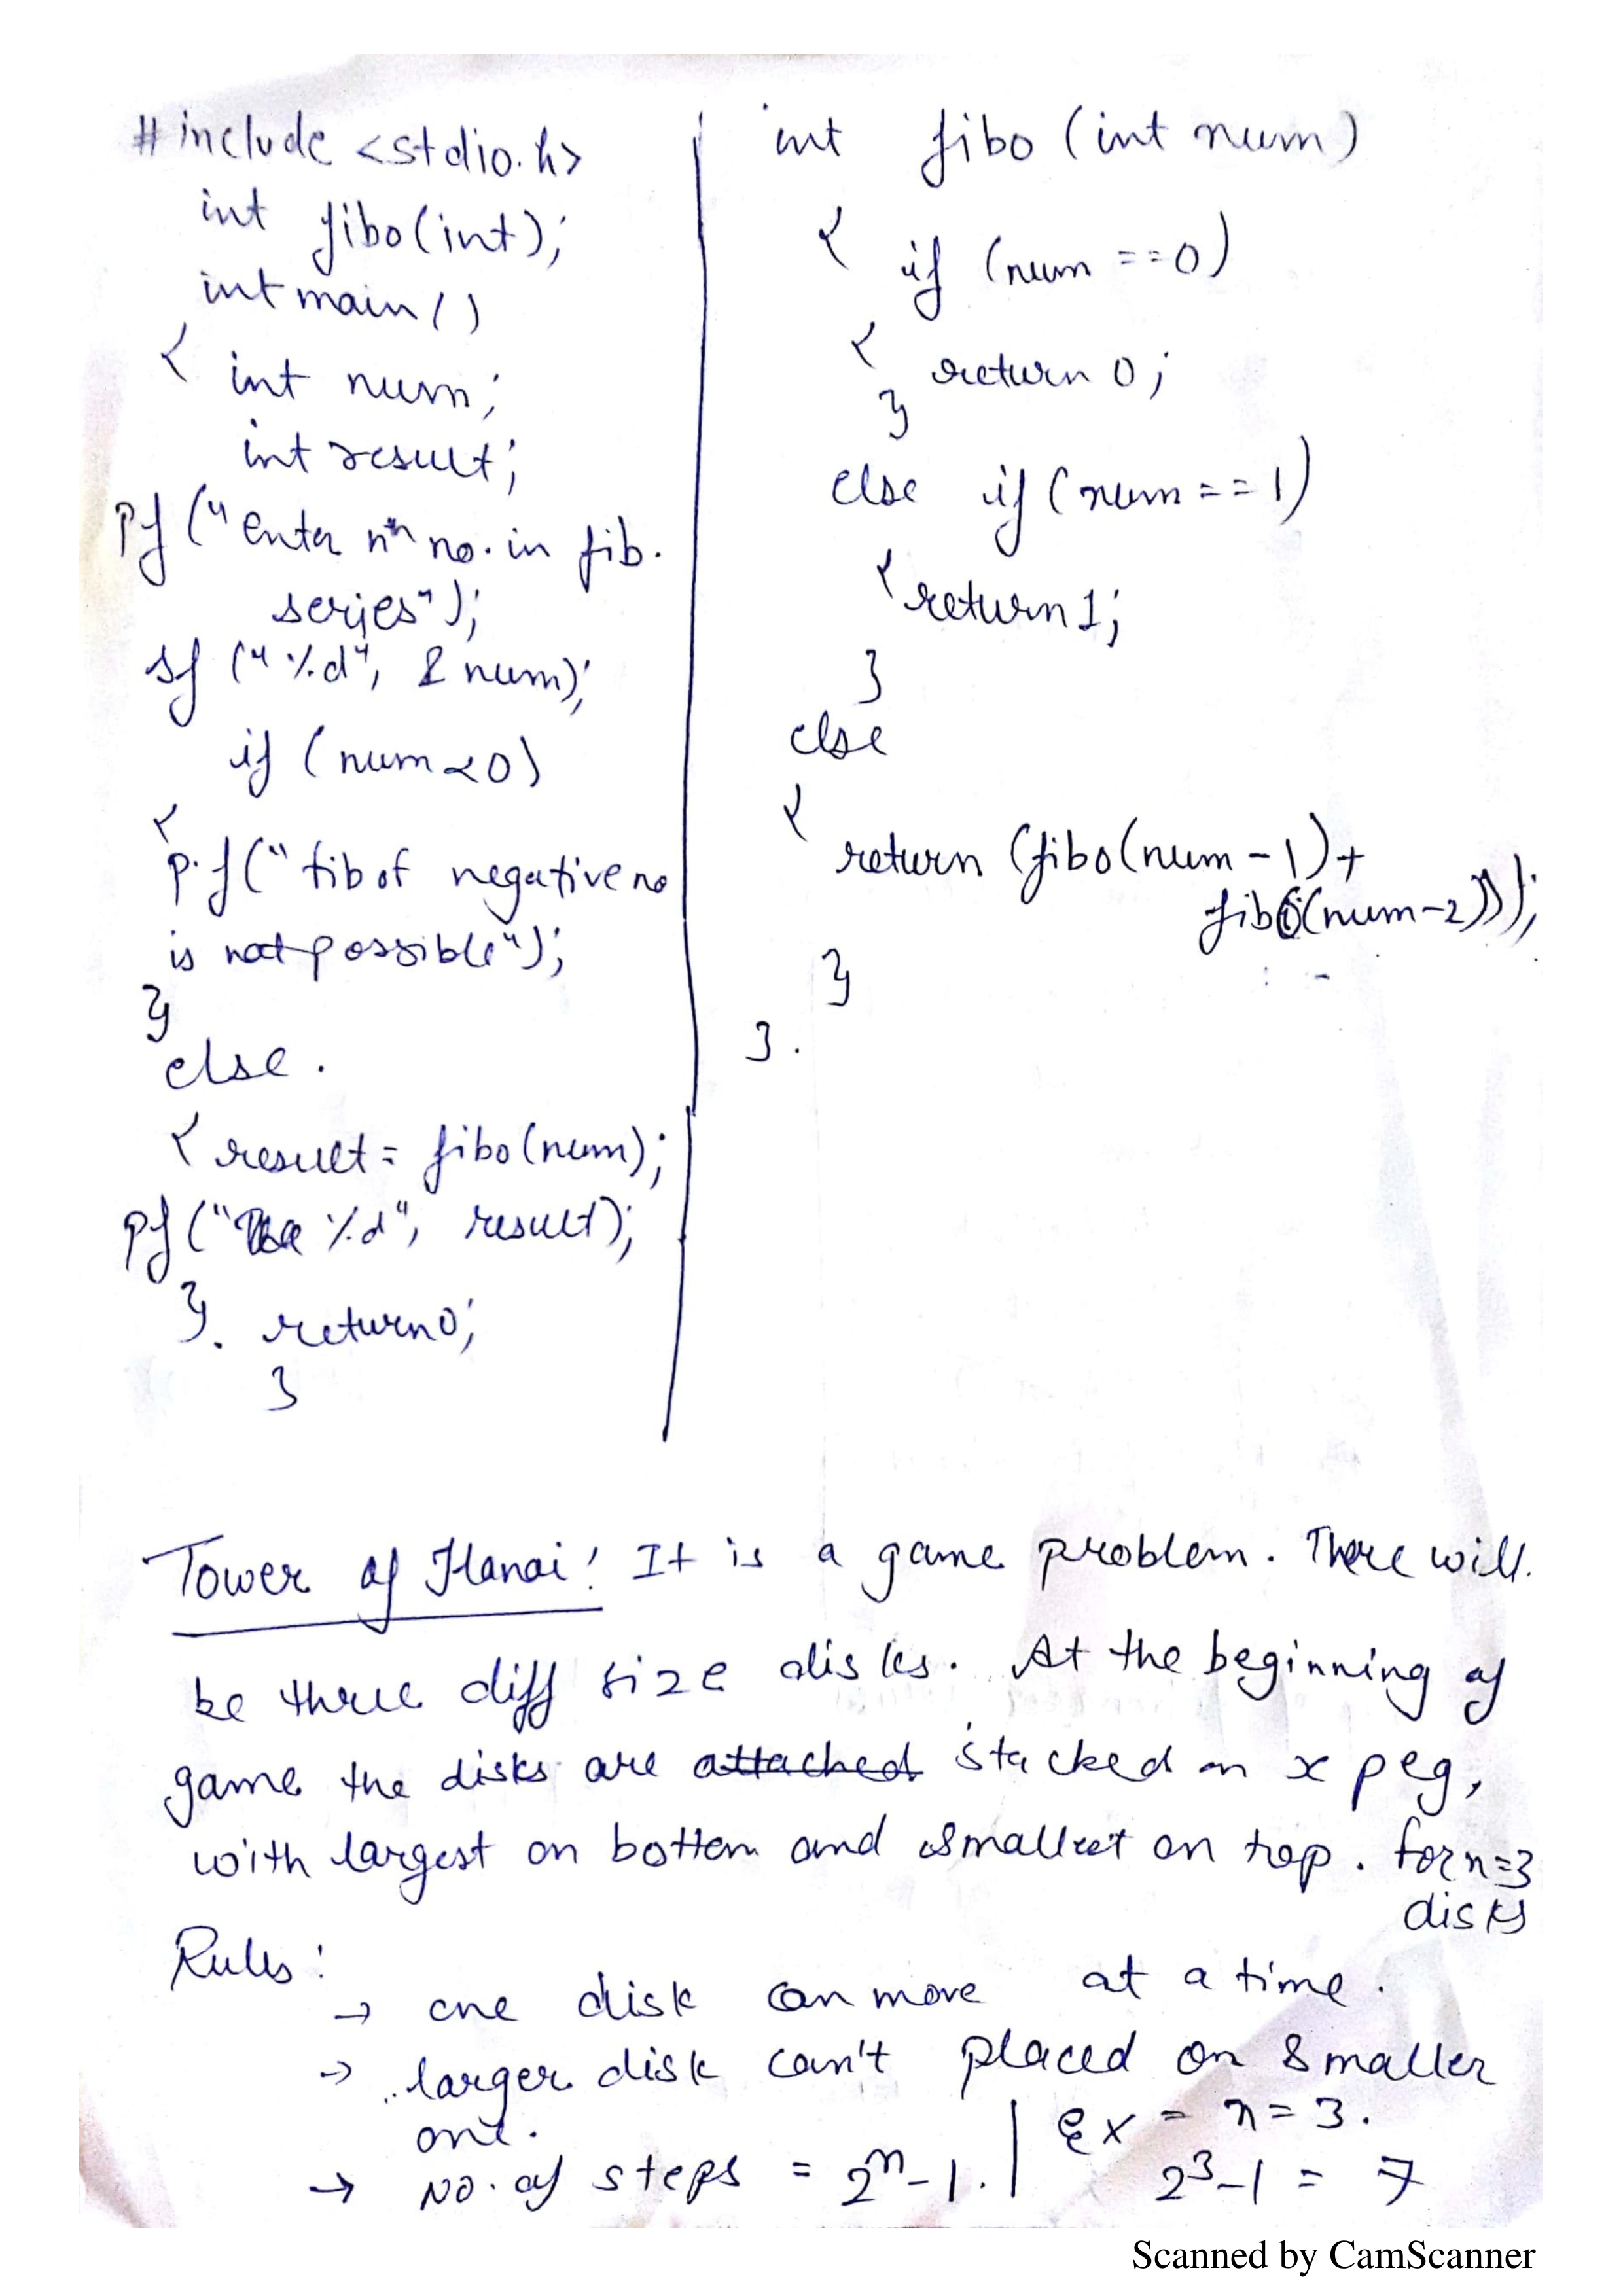 #include <stdio.h>
int fibo(int);
int main()
{ int num;
int result;
Pf ("Enter nth no. in fib.
series");
sf ("%d", &num);
if (num<0)
{
p.f(" fib of negative no
is not possible");
}
else.
{ result = fibo(num);
pf (" %d", result);
}. return 0;
}
int fibo (int num)
{ if (num ==0)
{ return 0;
}
else if (num == 1)
{ return 1;
}
else
{
return (fibo(num-1)+
fibo(num-2)));
}
}.
Tower of Hanoi: It is a game problem. There will.
be three diff size disks. At the beginning of
game the disks are attached stacked on x peg,
with largest on bottom and smallest on top. for n=3
disks
Rules:
→ one disk can move at a time.
→ larger disk can't placed on smaller
one.
→ No. of steps = 2^n-1. | Ex - n=3.
2^3-1 = 7
Scanned by CamScanner